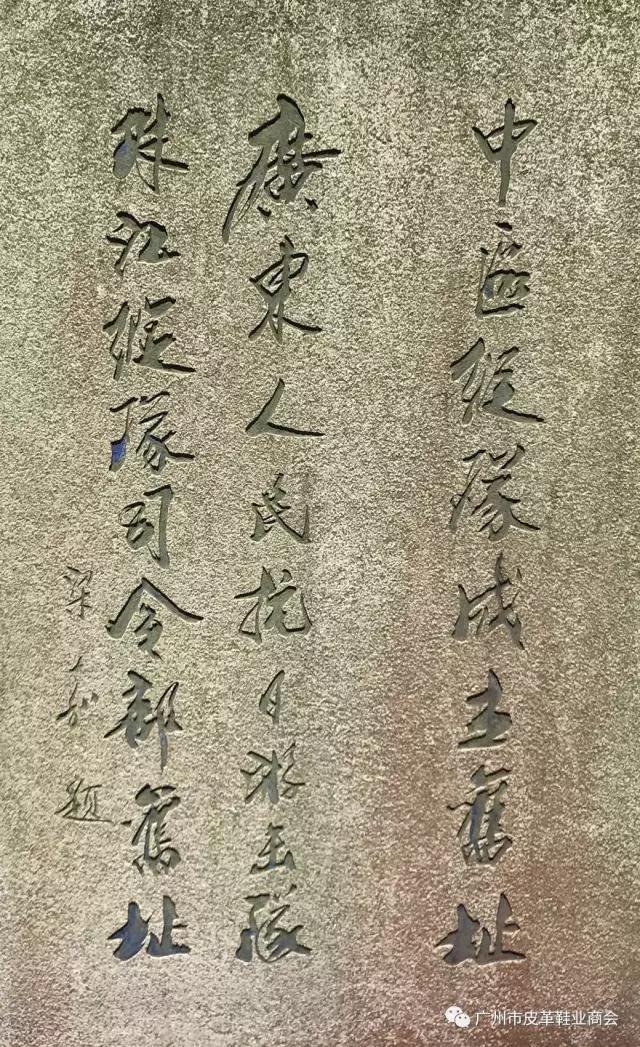 中區縱隊成立舊址
廣東人民抗日游击隊
珠江縱隊司令部舊址
梁嘉題
广州市皮革鞋业商会